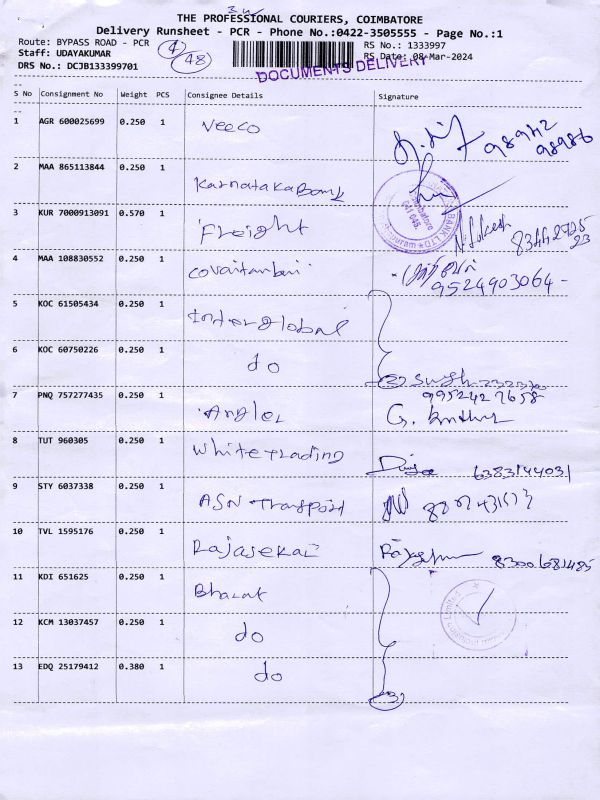 THE PROFESSIONAL COURIERS, COIMBATORE
Delivery Runsheet - PCR - Phone No.:0422-3505555 - Page No.:1
Route: BYPASS ROAD - PCR
RS No.: 1333997
Staff: UDAYAKUMAR
48
RS Date: 08-Mar-2024
DRS No.: DCJB133399701
DOCUMENTS DELIVERY
S No Consignment No Weight PCS Consignee Details Signature
1 AGR 600025699 0.250 1 Veeco
98942
98986
2 MAA 865113844 0.250 1 Karnataka Bank
3 KUR 7000913091 0.570 1 Freight N. Lokesh
4 MAA 108830552 0.250 1
9524903064
5 KOC 61505434 0.250 1 Interglobal
6 KOC 60750226 0.250 1 do
9952427658
7 PNQ 757277435 0.250 1 Angler
8 TUT 960305 0.250 1 White trading 6383144031
9 STY 6037338 0.250 1 ASN Transport
10 TVL 1595176 0.250 1 Rajasekar 8300681485
11 KDI 651625 0.250 1 Bharat
12 KCM 13037457 0.250 1 do
13 EDQ 25179412 0.380 1 do
3